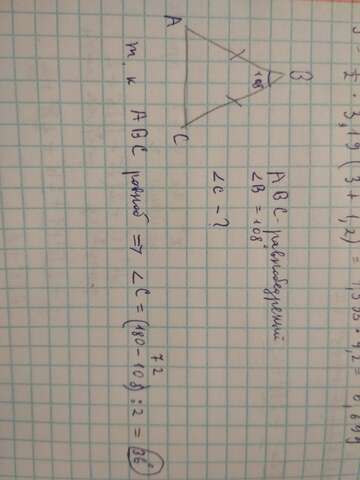 · 3,19 (3 + 1,2) =
A
B
C
108
ABC - равнобедренный
∠B = 108°
∠C - ?
т. к ABC равноб => ∠C = (180 - 108) : 2 = 36°
72